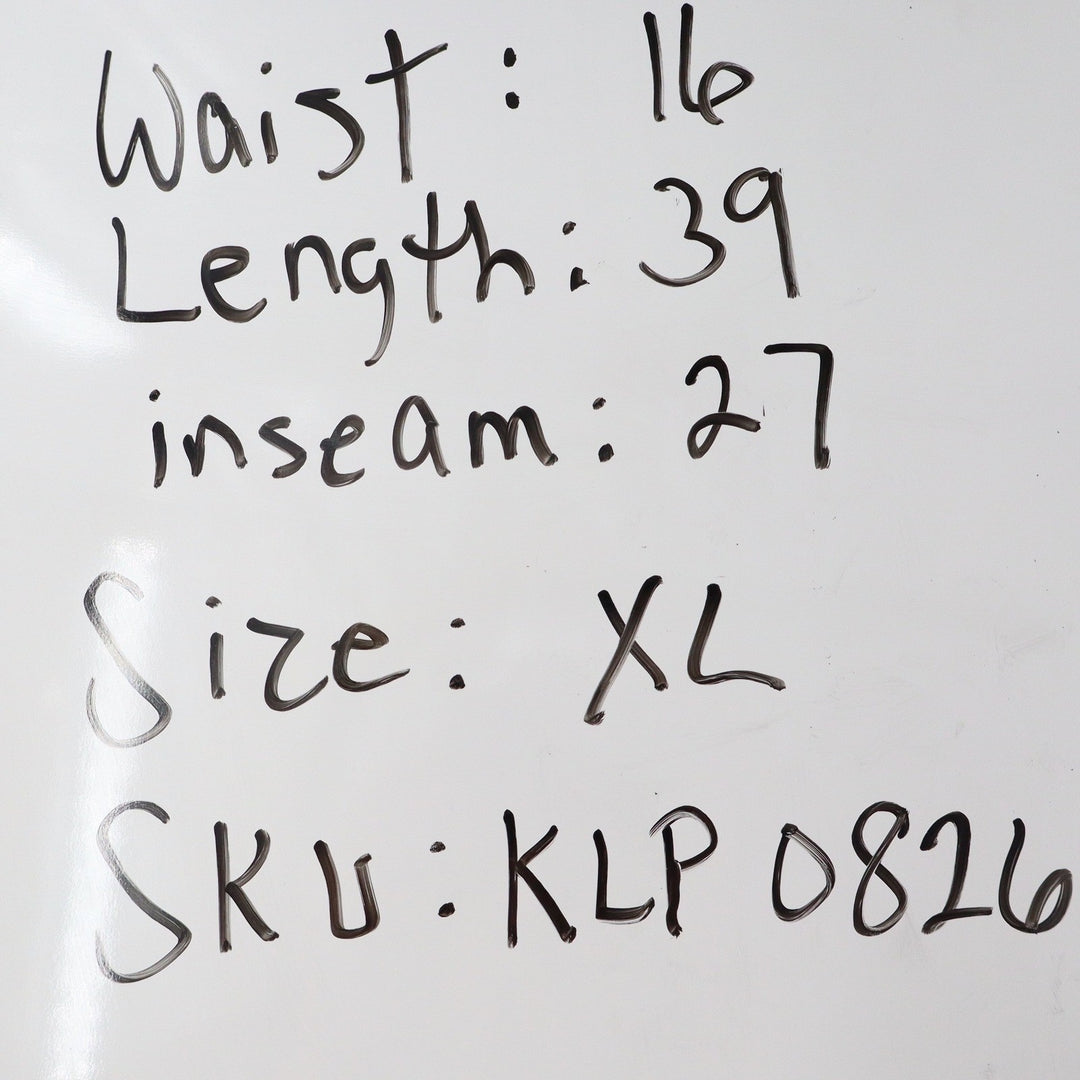 Waist: 16
Length: 39
inseam: 27
Size: XL
SKU: KLP 0826